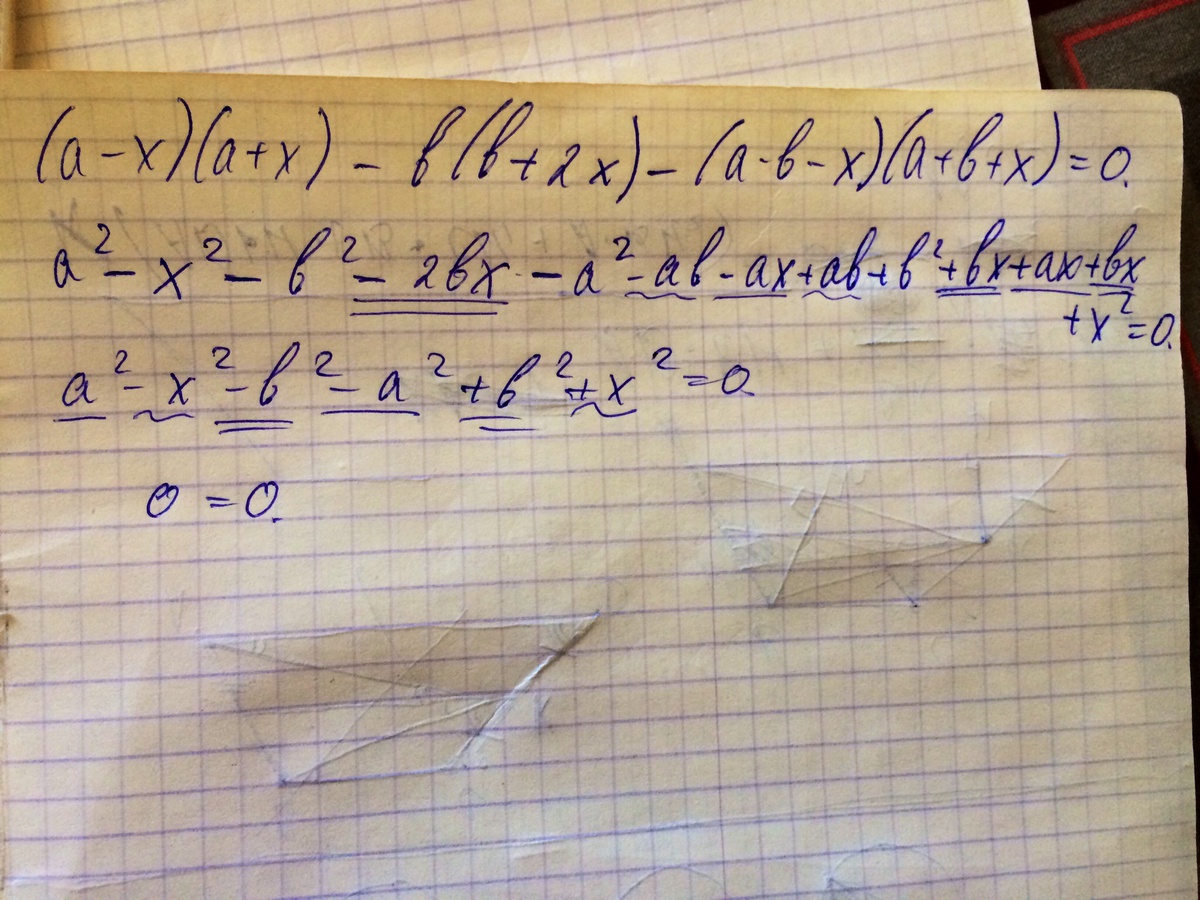 (a-x)(a+x) - b(b+2x) - (a-b-x)(a+b+x) = 0.
a² - x² - b² - 2bx - a² - ab - ax + ab + b² + bx + ax + bx
+ x² = 0.
a² - x² - b² - a² + b² + x² = 0
0 = 0.